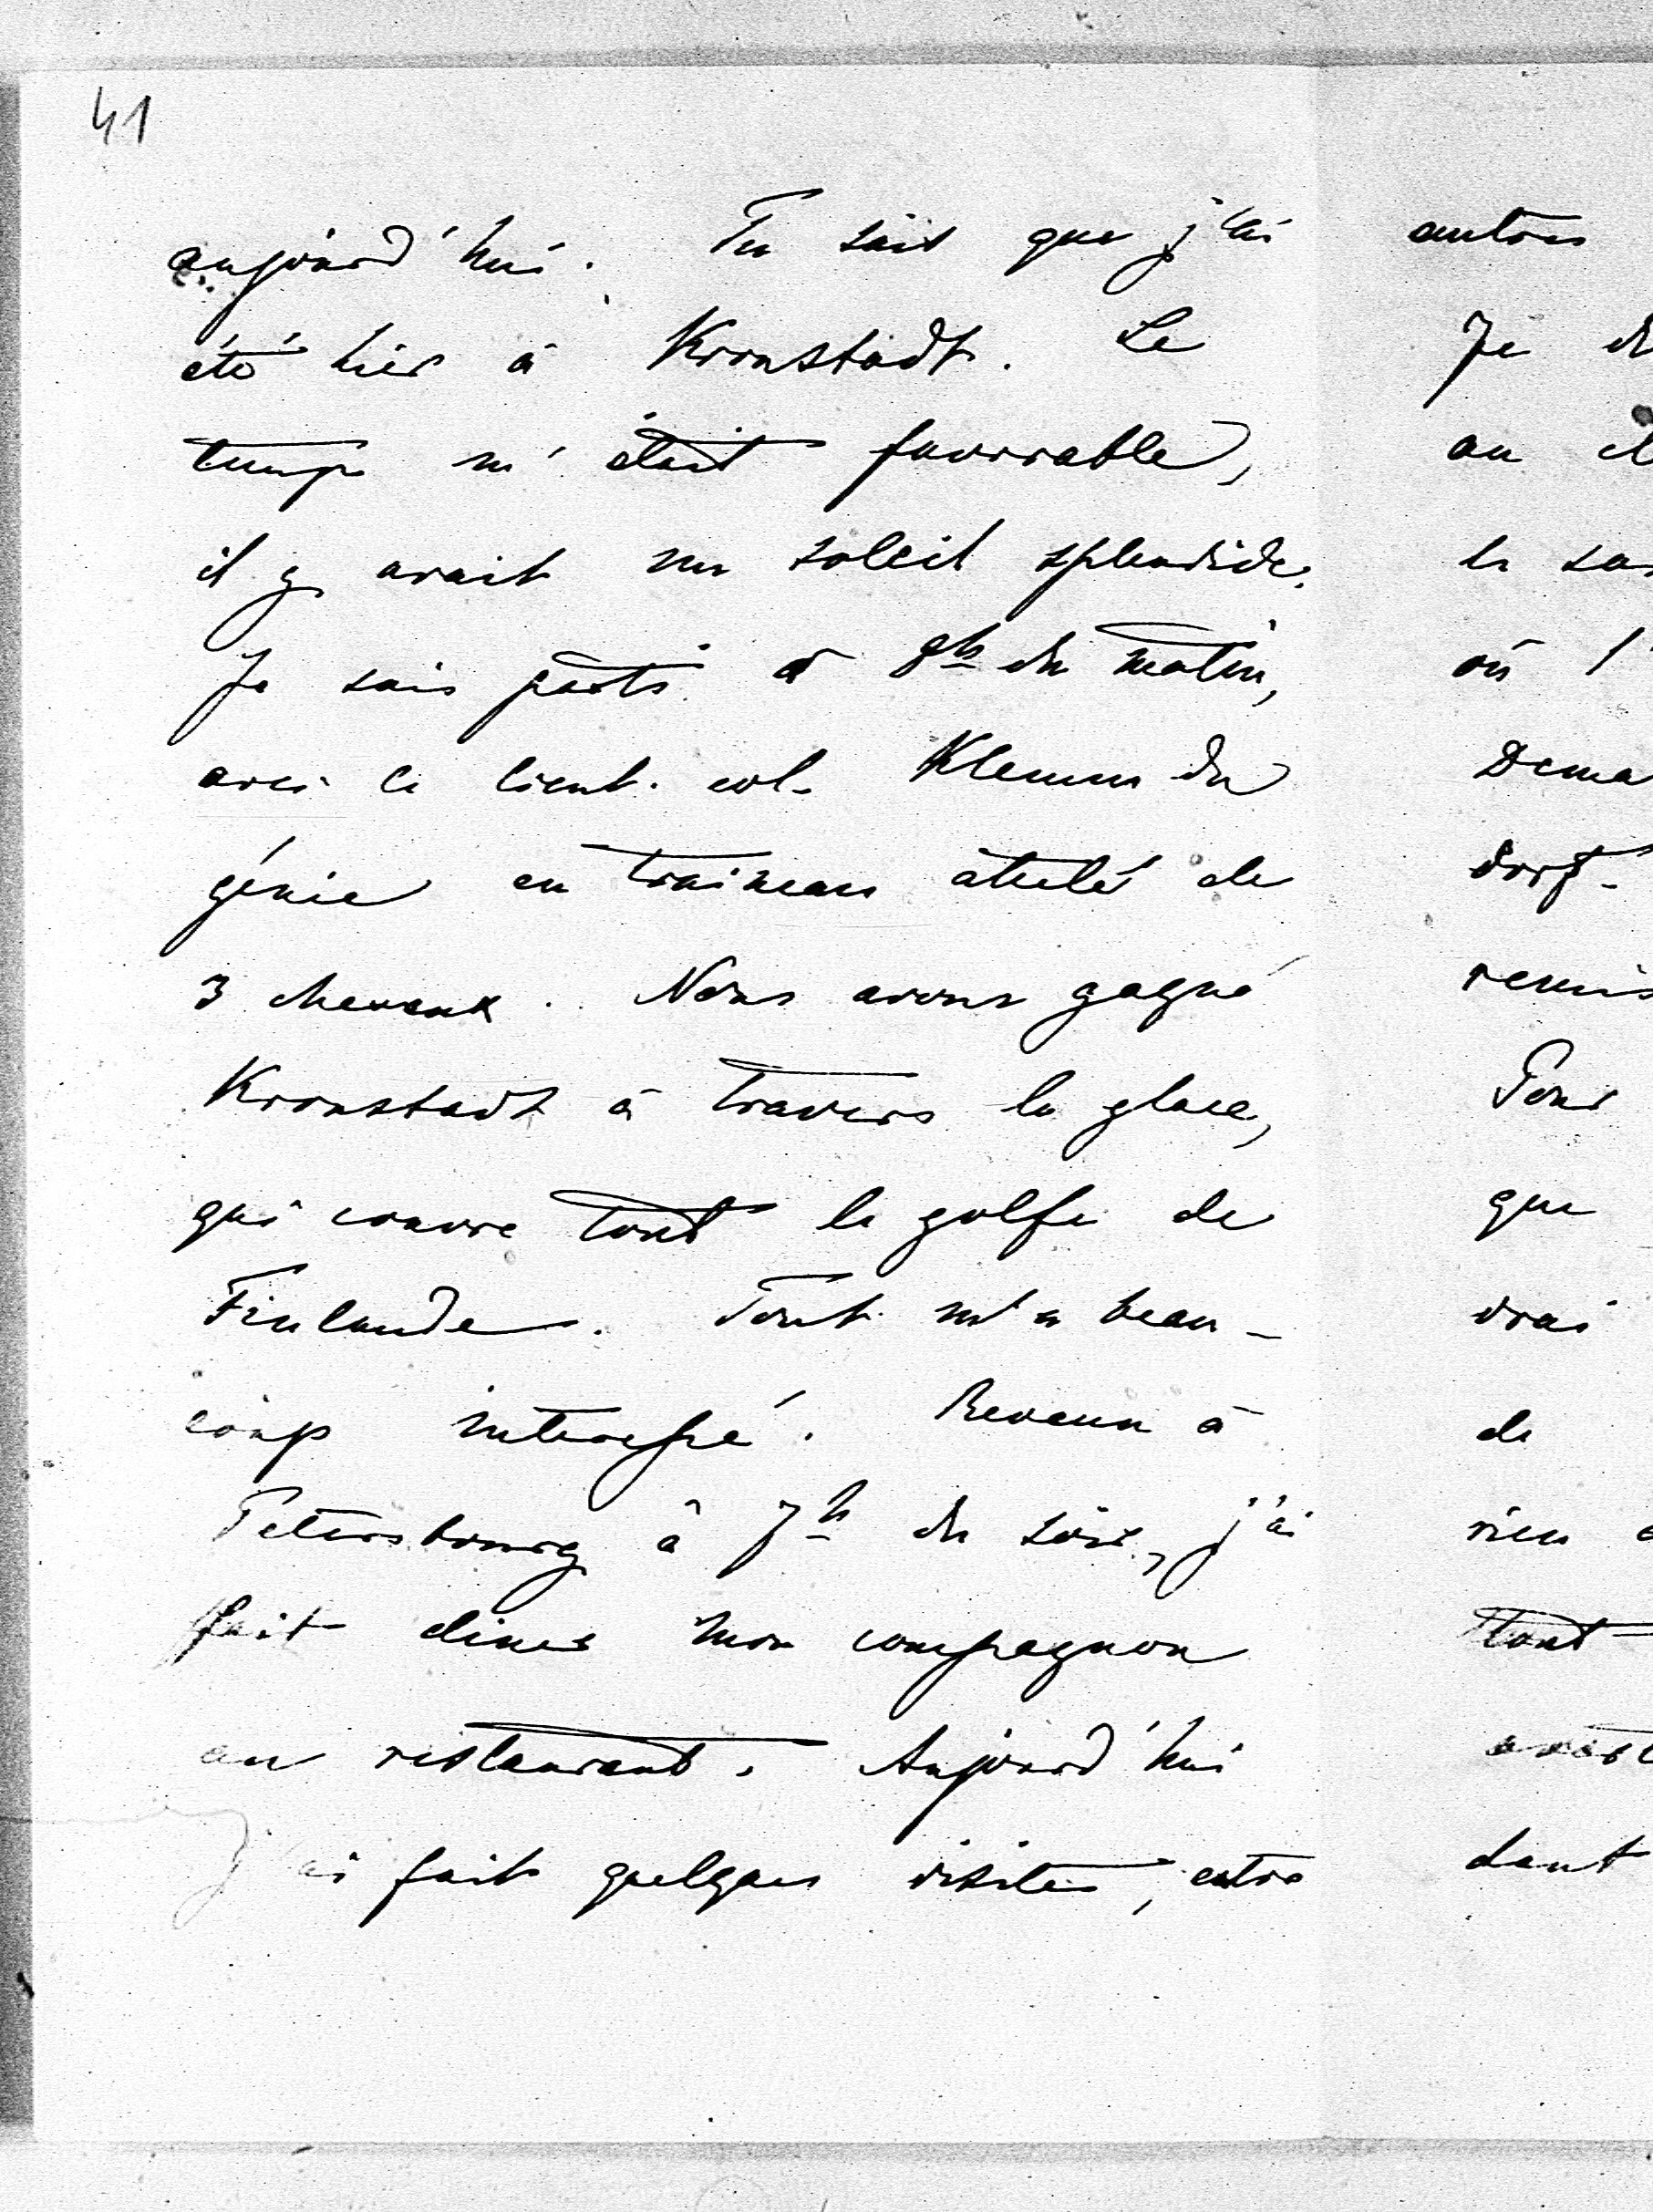 41
aujourd'hui. Tu sais que j'ai
été hier à Kronstadt. Le
temps m'était favorable,
il y avait un soleil splendide.
Je suis parti à 9h du matin,
avec le lieut. col. Klemm du
génie en traineau atelé de
3 chevaux. Nous avons gagné
Kronstadt à travers la glace,
qui couvre tout le golfe de
Finlande. Tout m'a beau-
coup interessé. Revenu à
Petersbourg à 7h du soir, j'ai
fait diner mon compagnon
au restaurant. Aujourd'hui
J'ai fait quelques visites, entre
autres
Je
au
le
où l'
Dema
dorf.
remis
Pour
que
vrai
de
rien
tout
dant